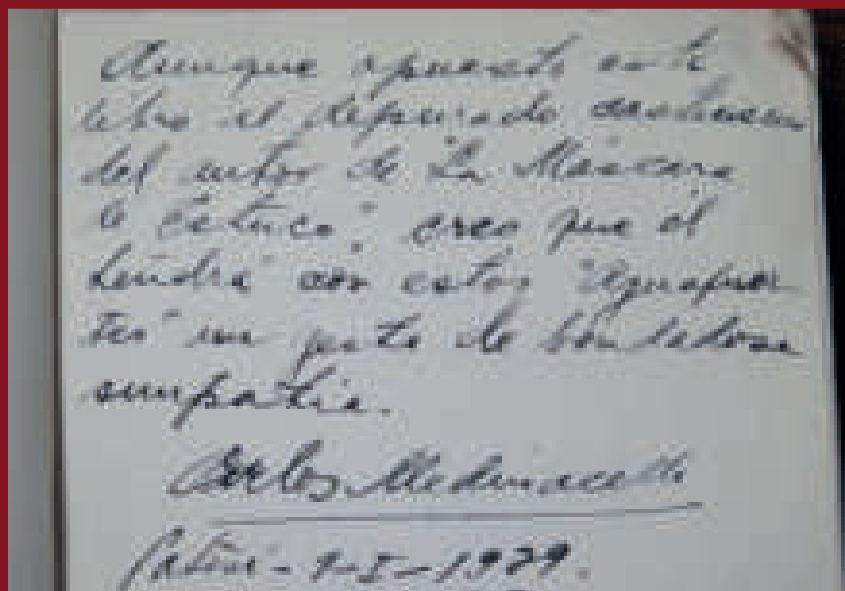 Aunque opuesto este
libro al depurado
del autor de "La Máscara
de Estuco", creo que él
tendrá con estos "Aguafuer
tes" un gesto de bondadosa
simpatía.
Carlos Medinaceli
1-I-1929.